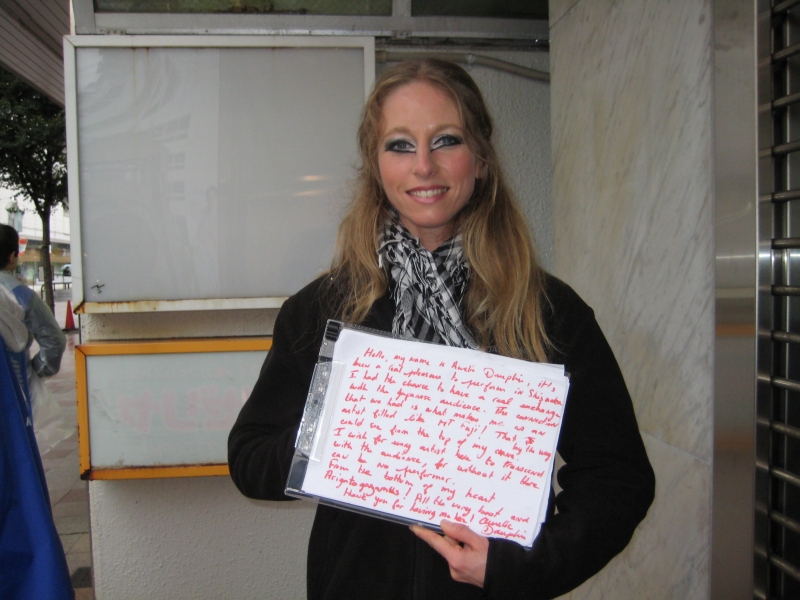 Hello, my name is Aurélie Dauphin, it's
been a real pleasure to perform in Shizuoka
I had the chance to have a real exchange
with the Japanese audience. The connection
that we had is what makes me as an
artist filled like MT Fuji! That, by the way
could see from the top of my
I wish for every artist here to transcend
with the audience, for without it there
can be no performer.
From the bottom of my heart
Arigatogozaimas! All the very best and
thank you for having me here! Aurélie
Dauphin